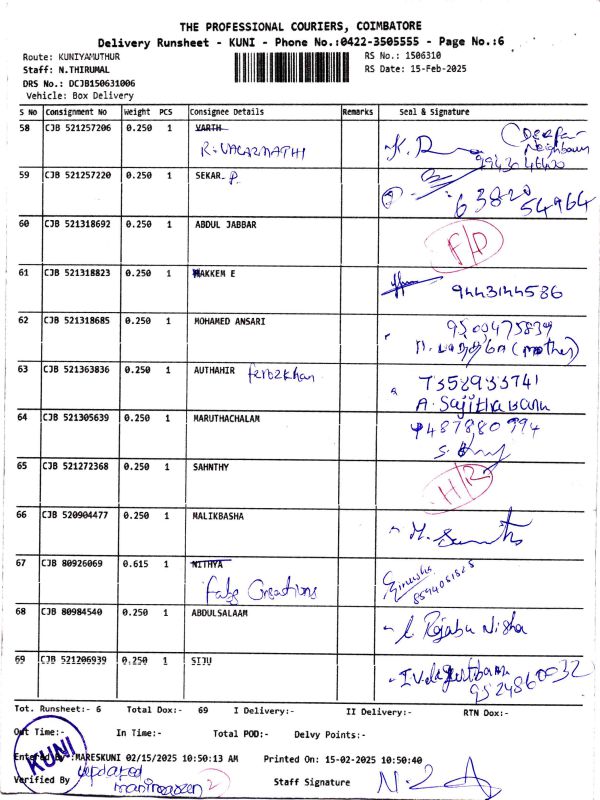 THE PROFESSIONAL COURIERS, COIMBATORE
Delivery Runsheet - KUNI - Phone No.:0422-3505555 - Page No.:6
Route: KUNIYAMUTHUR RS No.: 1506310
Staff: N.THIRUMAL RS Date: 15-Feb-2025
DRS No.: DCJB150631006
Vehicle: Box Delivery
S No Consignment No Weight PCS Consignee Details Remarks Seal & Signature
58 CJB 521257206 0.250 1 VARTH
R. VALARMATHI
59 CJB 521257220 0.250 1 SEKAR. P.
63820
54964
60 CJB 521318692 0.250 1 ABDUL JABBAR F/D
61 CJB 521318823 0.250 1 HAKKEM E 9443144586
62 CJB 521318685 0.250 1 MOHAMED ANSARI
(mother)
63 CJB 521363836 0.250 1 AUTHAHIR ferozkhan
A. Sajitha banu
64 CJB 521305639 0.250 1 MARUTHACHALAM 9487880994
65 CJB 521272368 0.250 1 SAHNTHY
66 CJB 520904477 0.250 1 MALIKBASHA
67 CJB 80926069 0.615 1 NITHYA
Creations
68 CJB 80984540 0.250 1 ABDULSALAAM Rajabu Nisha
69 CJB 521206939 0.250 1 SIJU
9524860032
Tot. Runsheet:- 6 Total Dox:- 69 I Delivery:- II Delivery:- RTN Dox:-
Out Time:- In Time:- Total POD:- Delvy Points:-
Entered By :MARESKUNI 02/15/2025 10:50:13 AM Printed On: 15-02-2025 10:50:40
KUNI
updated
Verified By 2 Staff Signature